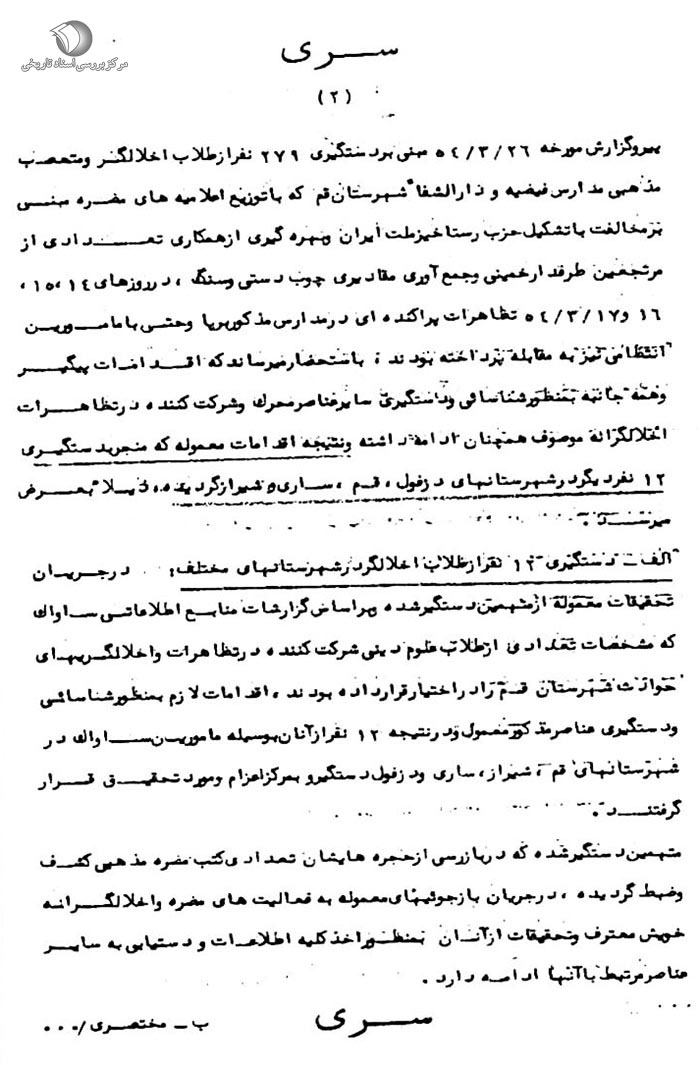 مرکز بررسی اسناد تاریخی
سری
(۲)
پیرو گزارش مورخه ۵۴/۳/۲۶ مبنی بر دستگیری ۲۷۹ نفر از طلاب اخلالگر و متعصب
مذهبی مدارس فیضیه و دارالشفاء شهرستان قم که با توزیع اعلامیه های مضره مبنی
بر مخالفت با تشکیل حزب رستاخیز ملت ایران و بهره گیری از همکاری تعدادی از
مرتجعین طرفدار خمینی و جمع آوری مقادیری چوب دستی و سنگ ، در روزهای ۱۴ ، ۱۵ ،
۱۶ و ۵۴/۳/۱۷ تظاهرات پراکنده ای در مدارس مذکور برپا و حتی با مامورین
انتظامی نیز به مقابله پرداخته بودند ، باستحضار میرساند که اقدامات پیگیر
و همه جانبه بمنظور شناسائی و دستگیری سایر عناصر محرک و شرکت کننده در تظاهرات
اخلالگرانه موصوف همچنان ادامه داشته و نتیجه اقدامات معموله که منجر بدستگیری
۱۲ نفر دیگر در شهرستانهای دزفول ، قم ، ساری و شیراز گردیده ، ذیلا" بعرض
میرسد .
الف - دستگیری ۱۲ نفر از طلاب اخلالگر در شهرستانهای مختلف : در جریان
تحقیقات معموله از متهمین دستگیر شده و بر اساس گزارشات منابع اطلاعاتی ساواک
که مشخصات تعدادی از طلاب علوم دینی شرکت کننده در تظاهرات و اخلالگریهای
حوادث شهرستان قم را در اختیار قرار داده بودند ، اقدامات لازم بمنظور شناسائی
و دستگیری عناصر مذکور معمول و در نتیجه ۱۲ نفر از آنان بوسیله مامورین ساواک در
شهرستانهای قم ، شیراز ، ساری و دزفول دستگیر و بمرکز اعزام و مورد تحقیق قرار
گرفتند .
متهمین دستگیر شده که در بازرسی از حجره هایشان تعدادی کتب مضره مذهبی کشف
و ضبط گردیده ، در جریان بازجوئیهای معموله به فعالیت های مضره و اخلالگرانه
خویش معترف و تحقیقات از آنان بمنظور اخذ کلیه اطلاعات و دستیابی به سایر
عناصر مرتبط با آنها ادامه دارد .
...
سری
ب - مختصری /...